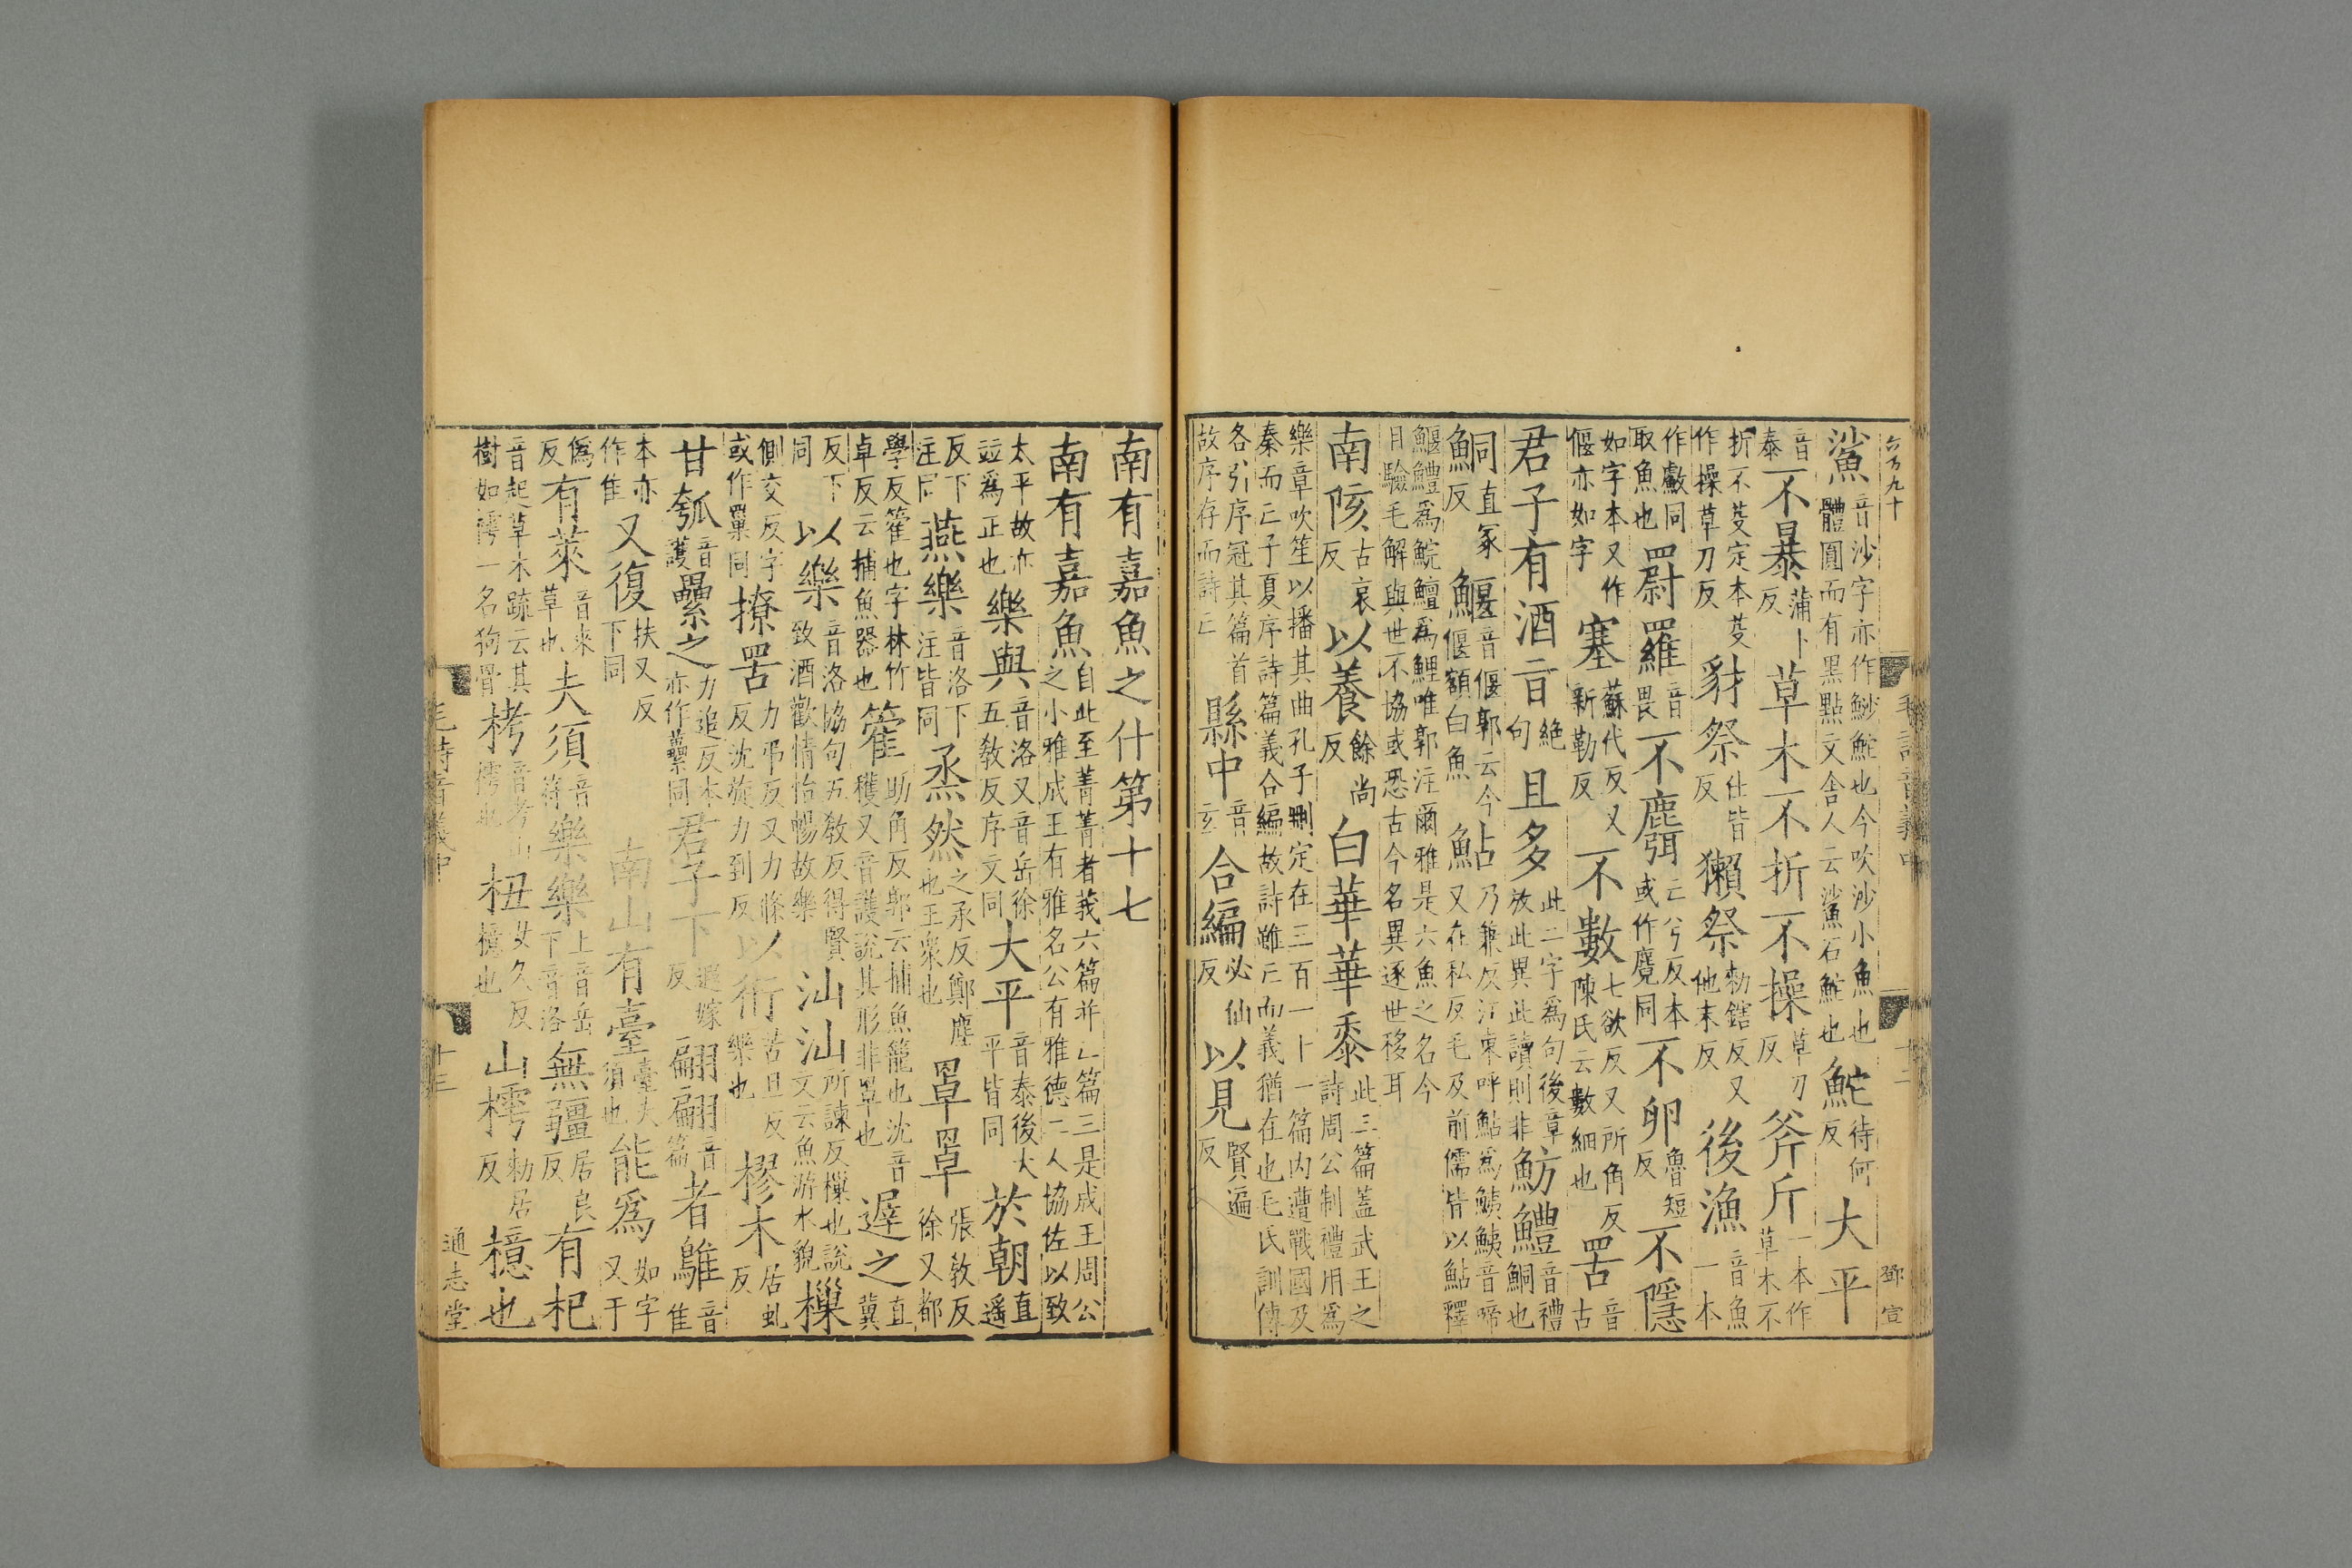 鯊音沙字亦作魦鮀也今吹沙小魚也體圓而有黑點文舍人云鯊石鮀也鮀待何反大平
音泰不暴蒲卜反草木不折不操草刀反斧斤一本作草木不
折不芟定本芟作操草刀反豺祭仕皆反獺祭勑鎋反又他末反後漁音魚一本
作䱷同取魚也罻羅音畏不麛亡兮反本或作麑同不卵魯短反不隱
如字本又作偃亦如字塞蘇代反又新勒反不數七欲反又所角反陳氏云數細也罟音古
君子有酒旨絕句且多此二字為句後章放此異此讀則非魴鱧音禮鮦也
鮦直冢反鰋音偃郭云今偃額白魚鮎乃兼反江東呼鮎為鮧鮧音啼又在私反毛及前儒皆以鮎釋
鰋鱧為鯇鱣為鯉唯郭注爾雅是六魚之名今目驗毛解與世不協或恐古今名異逐世移耳
南陔古哀反以養餘尚反白華華黍此三篇蓋武王之詩周公制禮用為
樂章吹笙以播其曲孔子刪定在三百一十一篇內遭戰國及秦而亡子夏序詩篇義合編故詩雖亡而義猶在也毛氏訓傳
各引序冠其篇首故序存而詩亡縣中音玄合編必仙反以見賢遍反
毛詩音義中
十二
鄧宣
南有嘉魚之什第十七
南有嘉魚自此至菁菁者莪六篇并亡篇三是成王周公之小雅成王有雅名公有雅德二人協佐以致
太平故亦竝為正也樂與音洛又音岳徐五教反序文同大平音泰後大平皆同於朝直遥
反下注同燕樂音洛下注皆同烝然之丞反鄭塵也王衆也罩罩張教反徐又都
學反籗也字林竹卓反云捕魚器也籗助角反郭云捕魚籠也沈音穫又音護說其形非罩也遲之直冀
反下同以樂音洛協句五教反得賢致酒歡情怡暢故樂汕汕所諫反樔也說文云魚游水貌樔
側交反字或作罺同撩罟力弔反又力條反沈旋力到反以衎苦旦反樂也樛木居虬反
甘瓠音護纍之力追反本亦作虆同君子下遐嫁反翩翩音篇者鵻音隹
本亦作隹又復扶又反下同南山有臺臺夫須也能為如字又于
偽反有萊音來草也夫須音符樂樂上音岳下音洛無疆居良反有杞
音起草木疏云其樹如樗一名狗骨栲音考山樗也杻女久反檍也山樗勑居反檍也
毛詩音義中
十二
通志堂